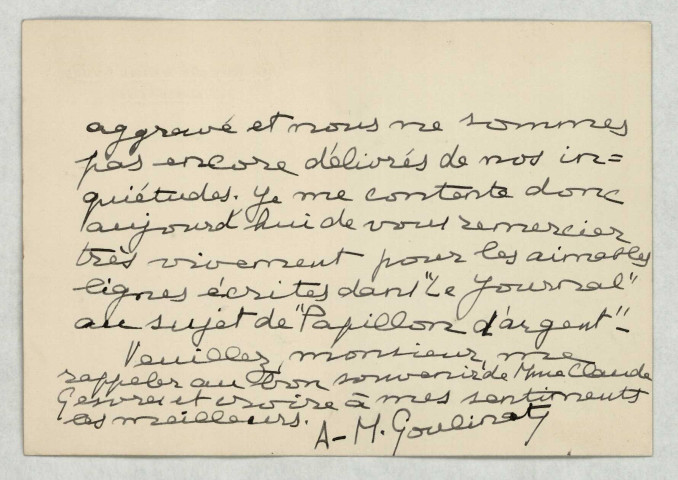 aggravé et nous ne sommes
pas encore délivrés de nos in=
quiétudes. Je me contente donc
aujourd'hui de vous remercier
très vivement pour les aimables
lignes écrites dans "Le Journal"
au sujet de "Papillon d'argent" -
Veuillez, monsieur, me
rappeler au bon souvenir de Mme Claude
Gesvres et croire à mes sentiments
les meilleurs.
A-M. Goulinat